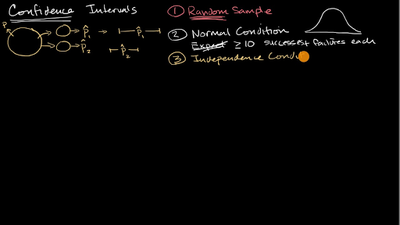 Confidence Intervals
P
p̂₁ → p̂₁
p̂₂ p̂₂
① Random Sample
② Normal Condition
Expect ≥ 10 successes + failures each
③ Independence Cond